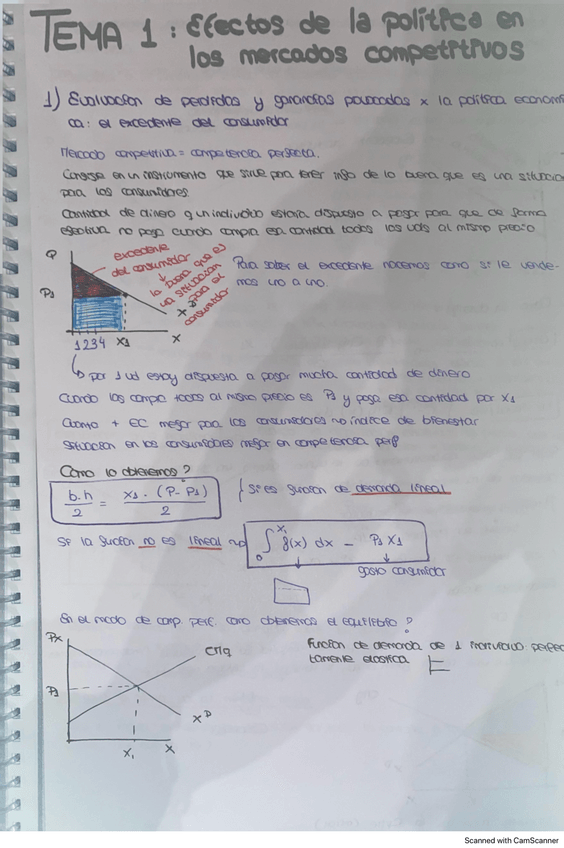 TEMA 1: Efectos de la política en
los mercados competitivos
1) Evaluación de perdidas y ganancias provocadas x la política económi
ca: el excedente del consumidor
Mercado competitivo = competencia perfecta.
Consiste en un instrumento que sirve para tener info de lo buena que es una situación
para los consumidores.
Cantidad de dinero q un individuo estaria dispuesto a pagar para que de forma
efectiva no paga cuando compra esa cantidad todos los uds al mismo precio
Q
excedente
del consumidor
lo buena que es
una situación
para el
consumidor
Para saber el excedente hacemos como si le vende-
mos uno a uno.
P1
X D
1 2 3 4 X1 X
por 1 ud estoy dispuesta a pagar mucha cantidad de dinero
Cuando los compra todos al mismo precio es P1 y paga esa cantidad por X1
Cuanto + EC mejor para los consumidores no índice de bienestar
Situación en los consumidores mejor en competencia perf
Como lo obtenemos?
b.h / 2 = X1 · (P - P1) / 2
Si es función de demanda lineal
Si la función no es lineal
∫ 0 X1 f(x) dx - P1 X1
gasto consumidor
En el mcdo de comp. perf. como obtenemos el equilibrio?
Px
CMg
Función de demanda de 1 individuo: perfec
tamente elastica
P1
X D
X1 X
Scanned with CamScanner